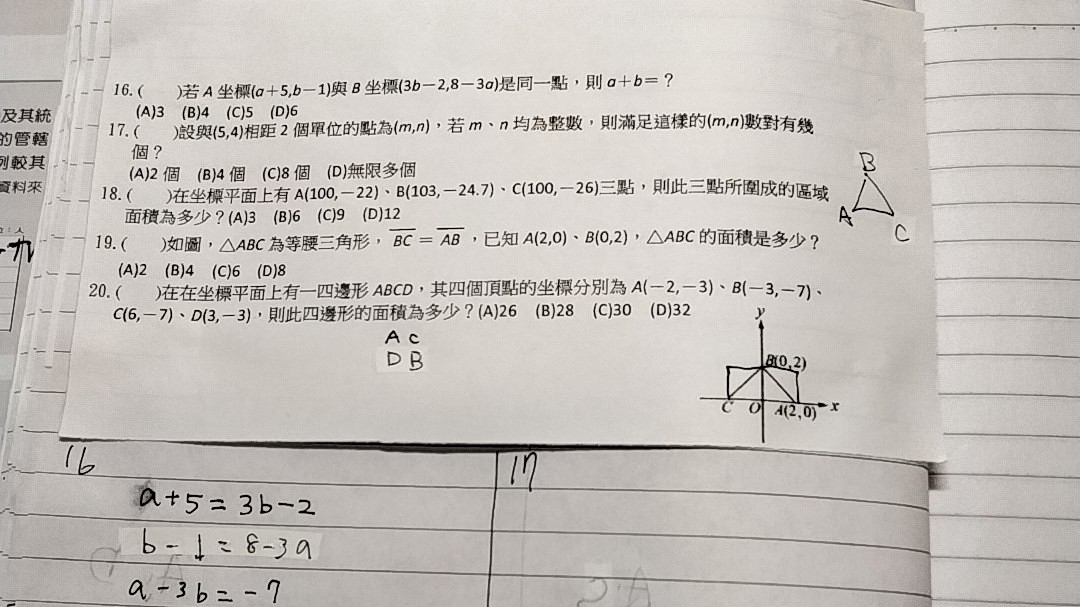 及其統
的管轄
列較其
資料來
16.(　　)若 A 坐標(a+5,b−1)與 B 坐標(3b−2,8−3a)是同一點，則 a+b=？
(A)3　(B)4　(C)5　(D)6
17.(　　)設與(5,4)相距 2 個單位的點為(m,n)，若 m、n 均為整數，則滿足這樣的(m,n)數對有幾
個？
(A)2 個　(B)4 個　(C)8 個　(D)無限多個
18.(　　)在坐標平面上有 A(100,−22)、B(103,−24.7)、C(100,−26)三點，則此三點所圍成的區域
面積為多少？(A)3　(B)6　(C)9　(D)12
B
A
C
19.(　　)如圖，△ABC 為等腰三角形， \overline{BC} = \overline{AB} ，已知 A(2,0)、B(0,2)，△ABC 的面積是多少？
(A)2　(B)4　(C)6　(D)8
20.(　　)在在坐標平面上有一四邊形 ABCD，其四個頂點的坐標分別為 A(−2,−3)、B(−3,−7)、
C(6,−7)、D(3,−3)，則此四邊形的面積為多少？(A)26　(B)28　(C)30　(D)32
A C
D B
y
B(0,2)
C O A(2,0) x
16
a+5=3b−2
b−1=8−3a
a−3b=−7
17